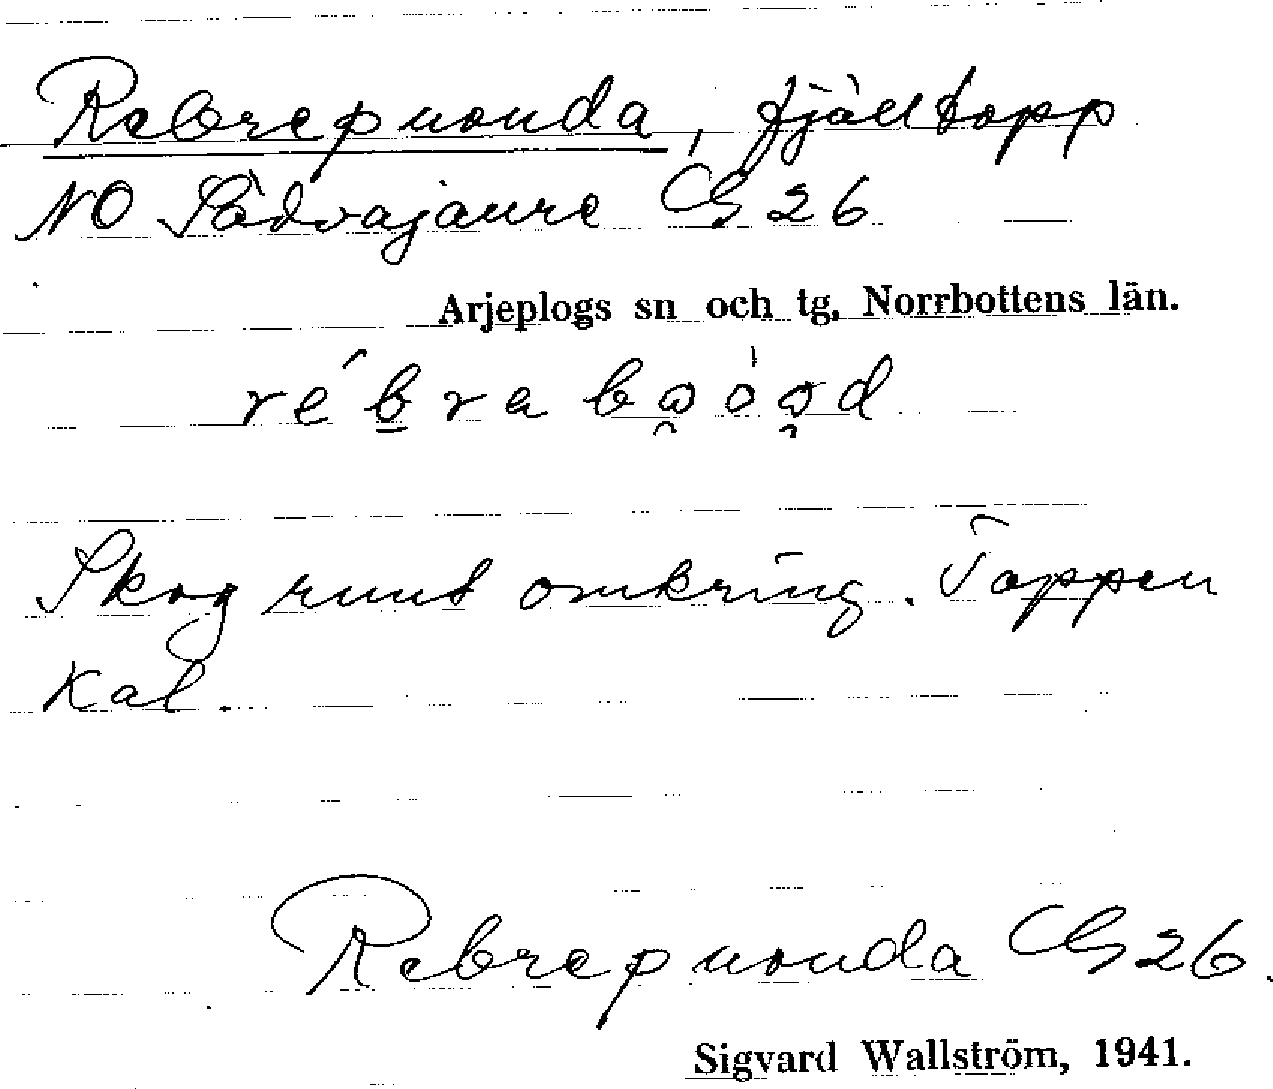 Rebrepuouda, fjälltopp
NO Sädvajaure G 26
Arjeplogs sn och tg, Norrbottens län.
Skog runt omkring. Toppen
kal.
Rebrepuouda G 26.
Sigvard Wallström, 1941.